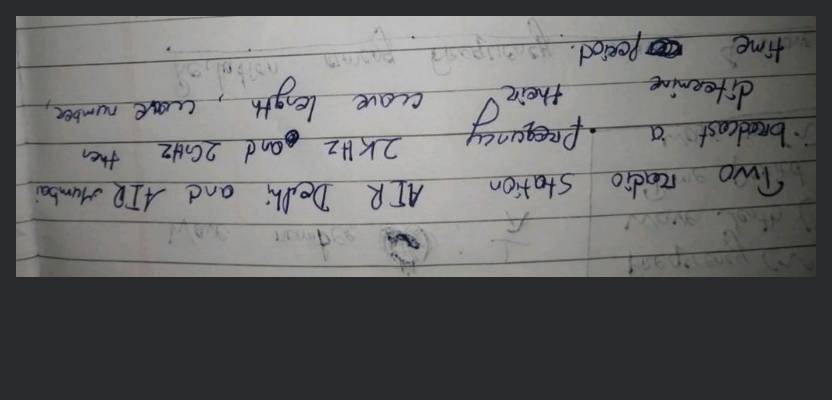 Two radio station AIR Delhi and AIR Mumbai
bradcast a frequncy 2KHz and 2GHz then
ditermine their wave length, wave number,
time period.